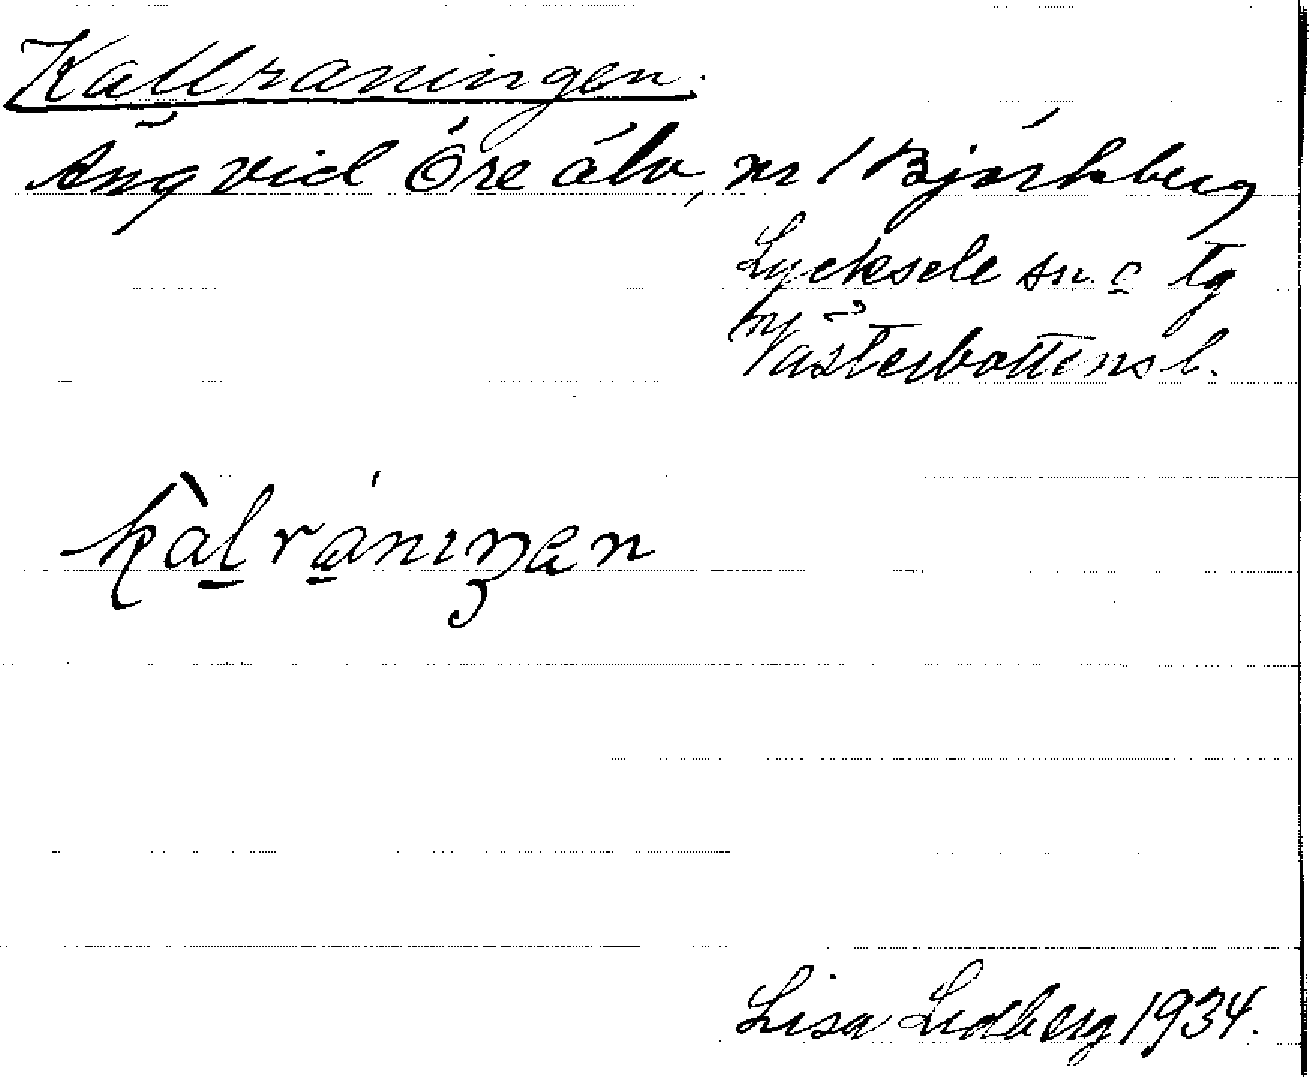 Kallraningen.
Äng vid Öre älv, nr 1 Björkberg
Lycksele sn o tg
Västerbottens l.
kàl̠ra̠nıŋen
Lisa Lidberg 1934.